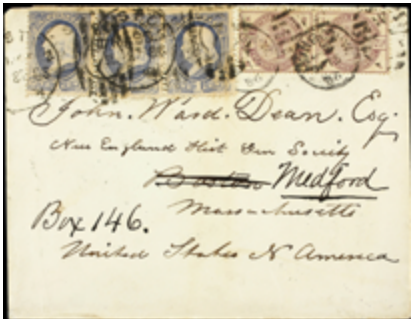 John. Ward. Dean. Esq.
New England Hist Gen Society
Boston Medford
Massachusetts
Box 146.
United States N America